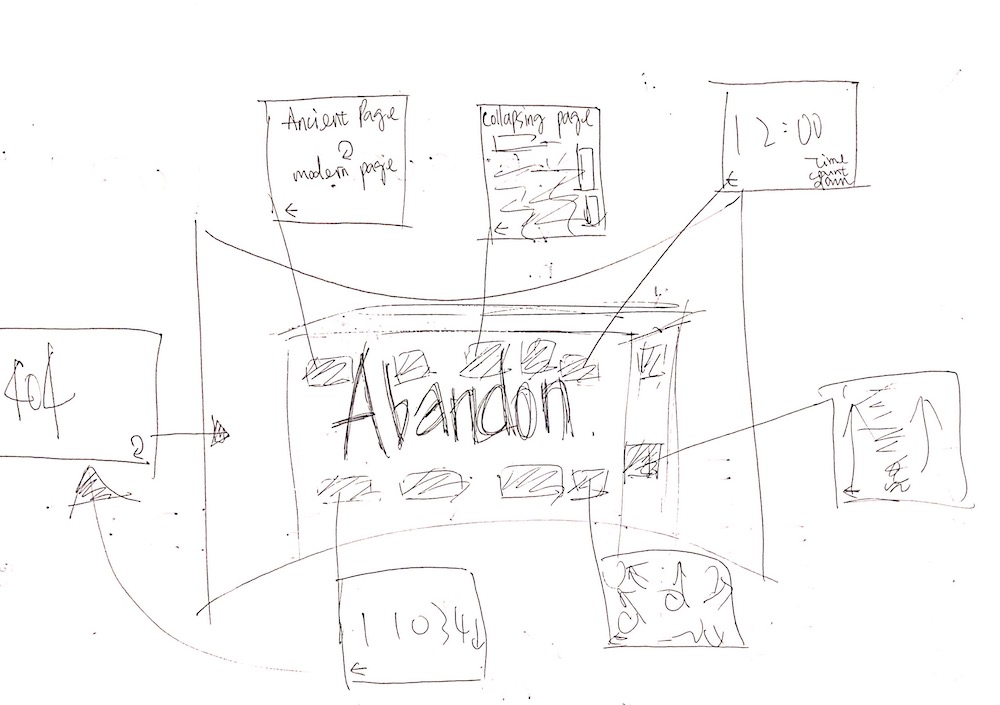 Ancient Page
2
modern page
collapsing page
12:00
Time
count
down
404
2
Abandon
11034